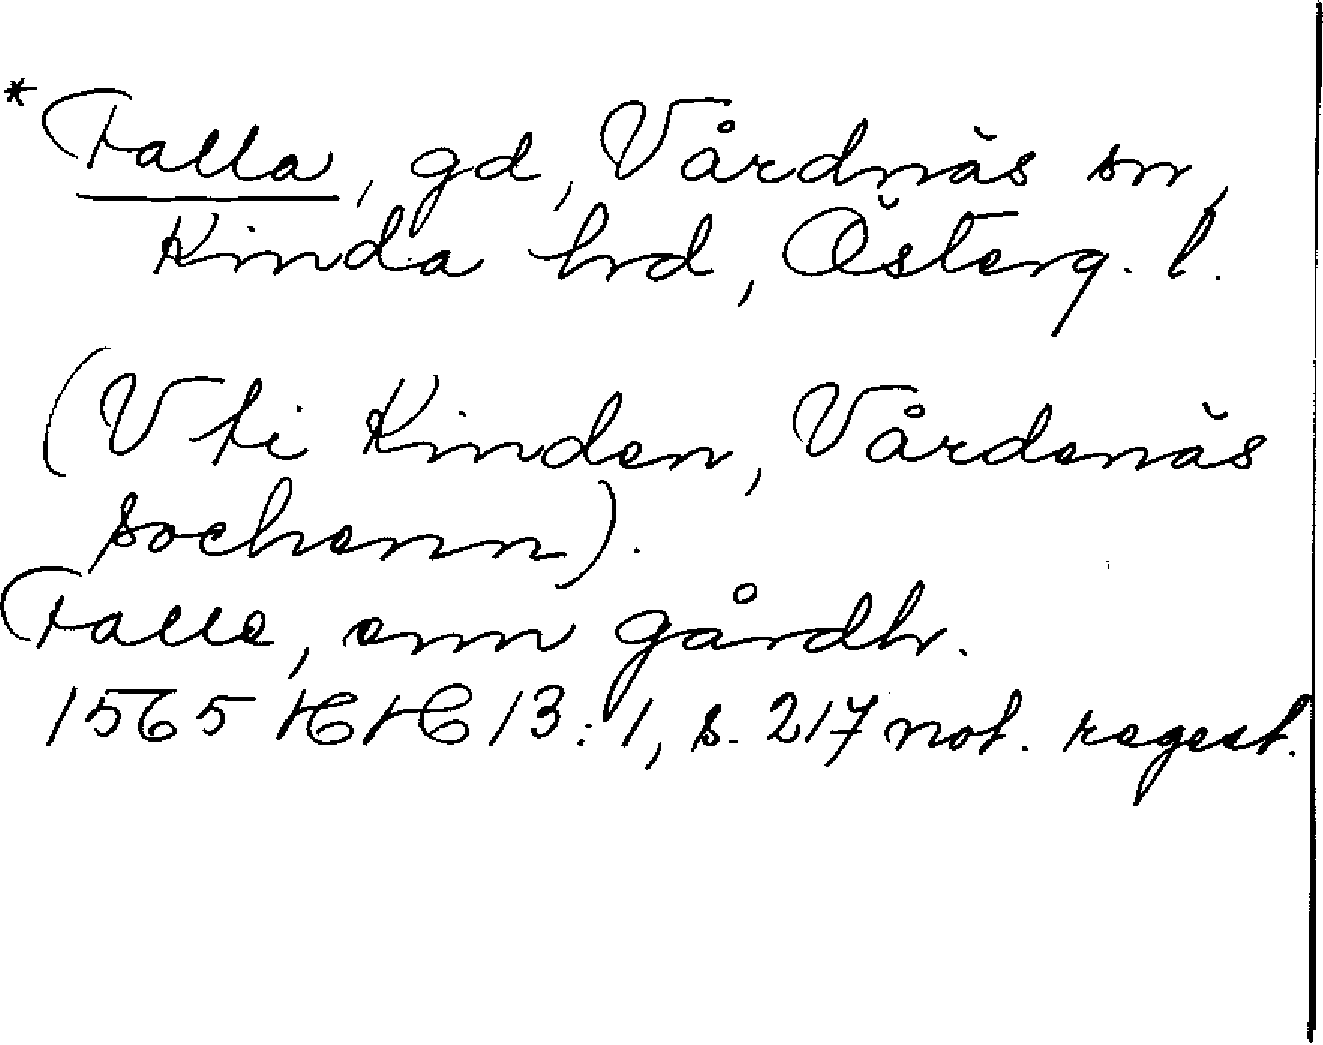 * Falla, gd, Vårdnäs sn,
Kinda hrd, Österg. l.
(Vti Kinden, Vårdenäs
sochenn).
Falle, enn gårdh.
1565 HH 13:1, s. 217 not. regest.